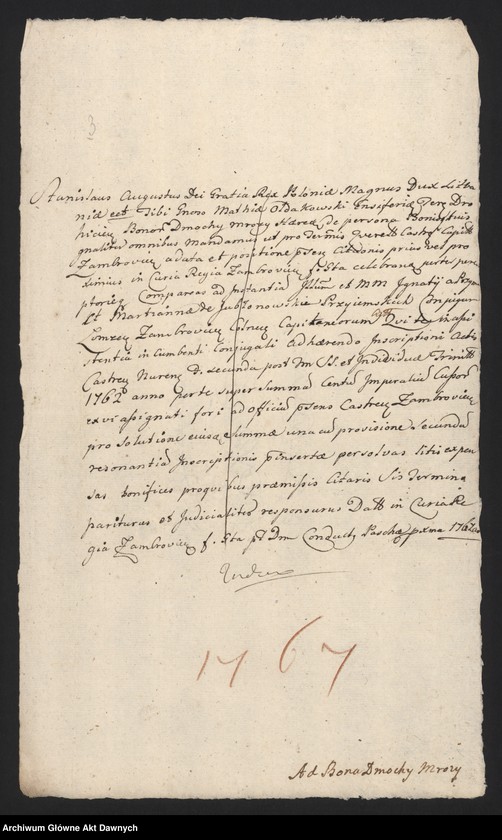 3
Stanislaus Augustus Dei Gratia Rex Poloniæ Magnus Dux Lithva
niæ ect Tibi Gnoso Mathiæ Ołdakowski Ensiferiæ Terræ Dro
hicien Bonor Dmochy Mrozy Hæredi de persona Bonisq tuis
gnaliter omnibus Mandamus ut pro Termis Querel Castr Capitlt
Zambrovien a data et positione pñtis Citãonis prius vel pro
ximius in Curia Regia Zambrovien f. Ita celebran perte perem
ptorie Compareas ad Instantiam Illum et MM Ignatij
et Martiannæ de Jabłonowskie Przyiemskich Conjugum
Lomzen Zambrovien Colnen Capitaneorum Qui te in assi
stentia in Cumbenti Conjugali adhærendo Inscriptioni Actis
Castren Nuren D. secunda post Fm SS. et Individuæ Trinitt
1762º anno perte super Summam Centum Imperalium Cussor
ex vi assignati fori ad Officium pñens Castren Zambrovien
pro solutione ejusq Summæ una cum provisione secundum
resonantiam Inscriptionis pñinsertæ persolvas litis expen
sas bonifices proquibus præmissis Citaris Sis Termine
pariturus et Judicialiter responsurus Datt in Curia Re
gia Zambrovien f. Ita pt Dm Conductus Paschæ pxma 1767
1767
Ad Bona Dmochy Mrozy
Archiwum Główne Akt Dawnych